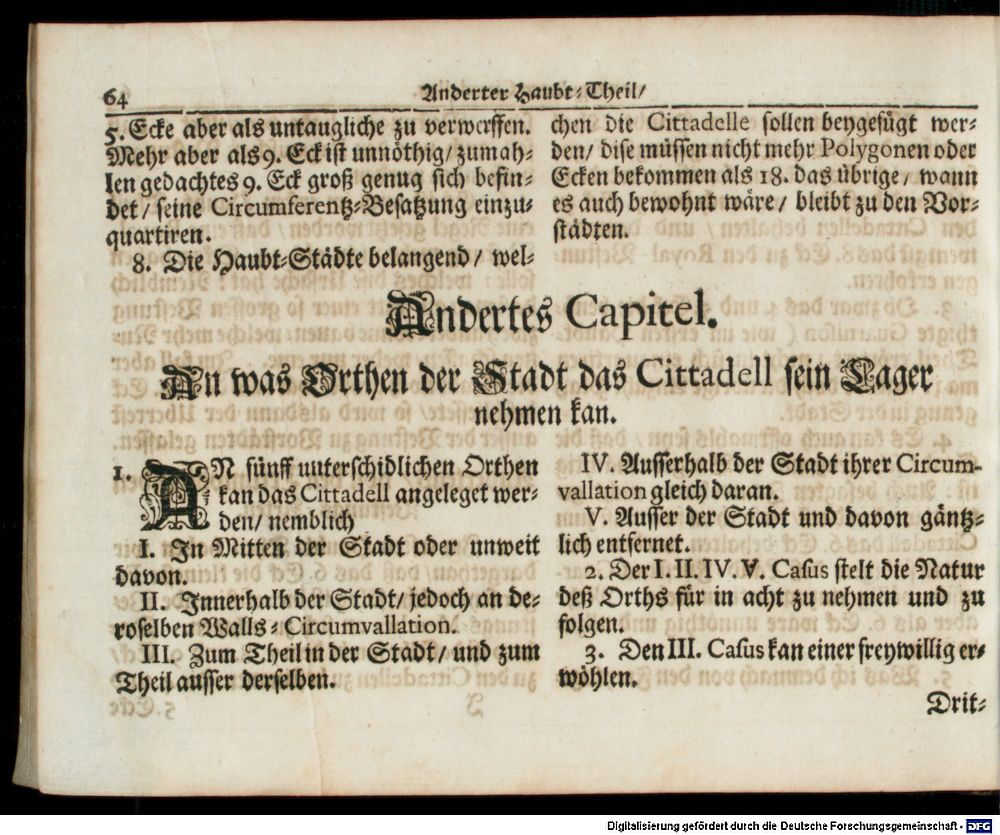 64
Anderter Haubt-Theil/
5. Ecke aber als untaugliche zu verwerffen.
Mehr aber als 9. Eck ist unnöthig/ zumah-
len gedachtes 9. Eck groß genug sich befin-
det/ seine Circumferentz-Besatzung einzu-
quartiren.
8. Die Haubt-Städte belangend/ wel-
chen die Cittadelle sollen beygefügt wer-
den/ dise müssen nicht mehr Polygonen oder
Ecken bekommen als 18. das übrige/ wann
es auch bewohnt wäre/ bleibt zu den Vor-
städten.
Andertes Capitel.
An was Orthen der Stadt das Cittadell sein Lager
nehmen kan.
1. AN fünff unterschidlichen Orthen
kan das Cittadell angeleget wer-
den/ nemblich
I. In Mitten der Stadt oder unweit
davon.
II. Innerhalb der Stadt/ jedoch an de-
roselben Walls-Circumvallation.
III. Zum Theil in der Stadt/ und zum
Theil ausser derselben.
IV. Ausserhalb der Stadt ihrer Circum-
vallation gleich daran.
V. Ausser der Stadt und davon gäntz-
lich entfernet.
2. Der I. II. IV. V. Casus stelt die Natur
deß Orths für in acht zu nehmen und zu
folgen.
3. Den III. Casus kan einer freywillig er-
wöhlen.
Drit-
Digitalisierung gefördert durch die Deutsche Forschungsgemeinschaft - DFG